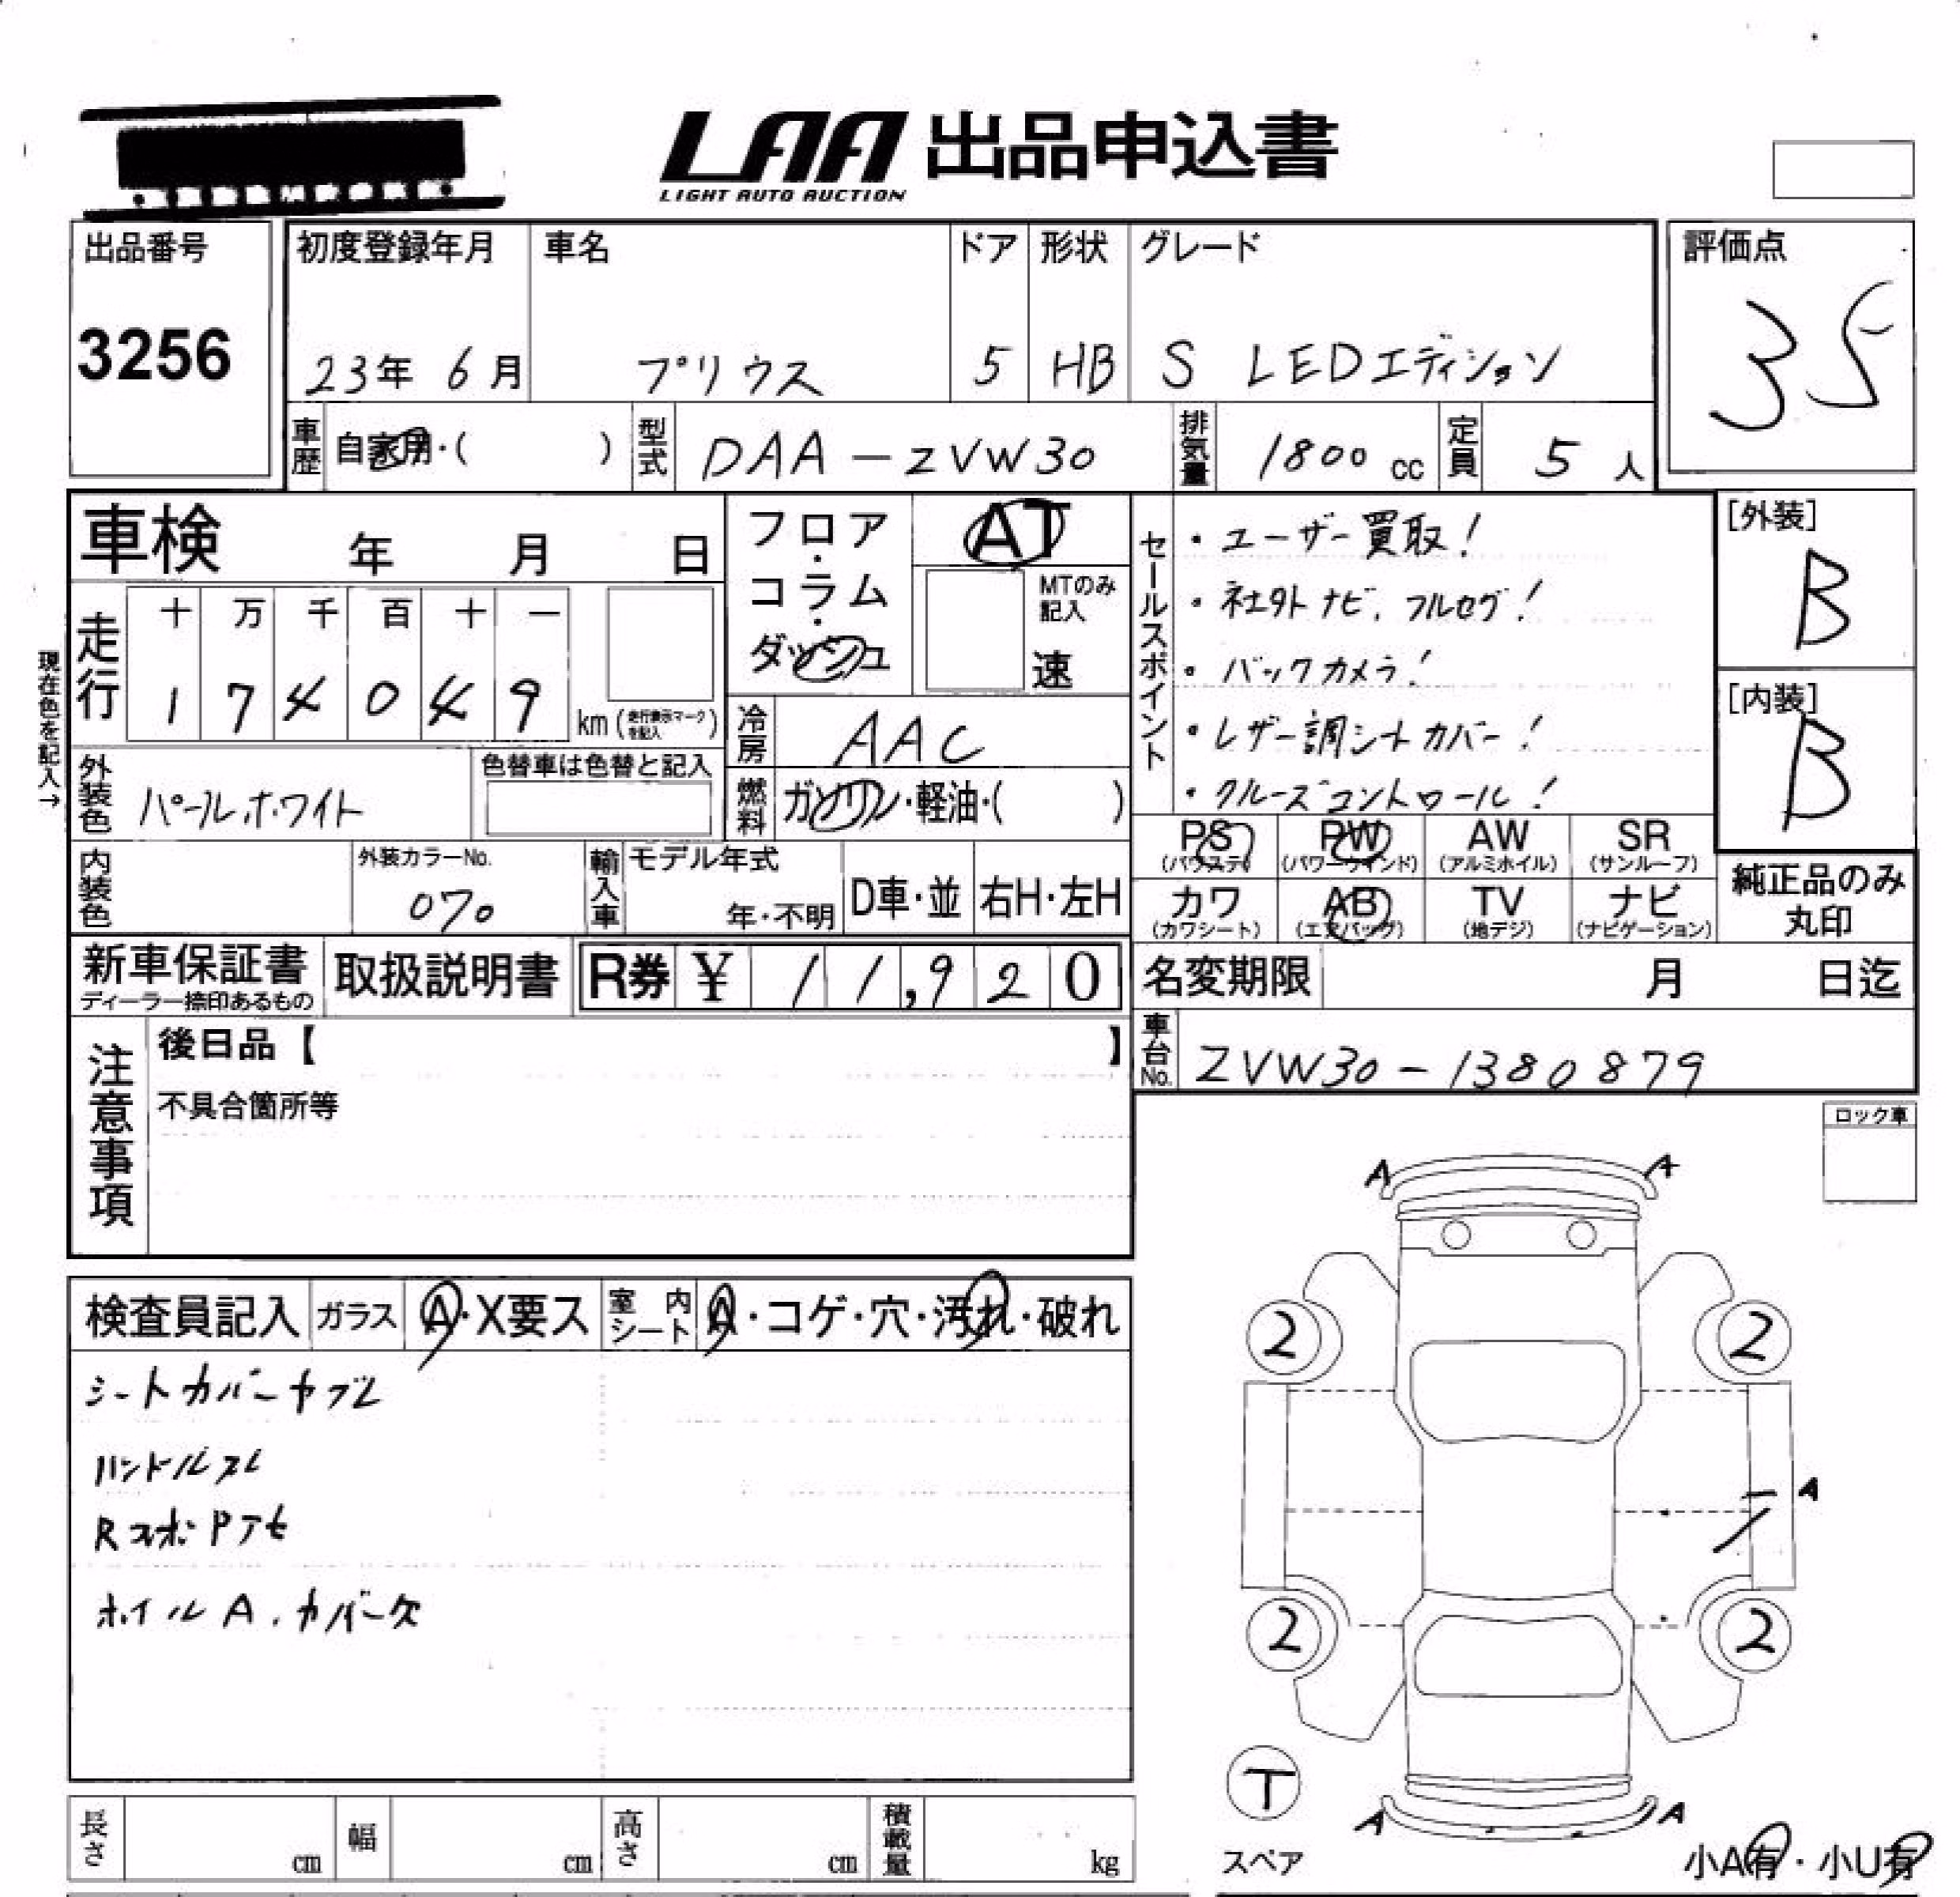 LAA 出品申込書
LIGHT AUTO AUCTION
出品番号
3256
初度登録年月
23年 6月
車名
プリウス
ドア
5
形状
HB
グレード
S LEDエディション
評価点
35
車歴
自家用・( )
型式
DAA-ZVW30
排気量
1800 cc
定員
5 人
車検 年 月 日
フロア・コラム・ダッシュ
AT
MTのみ記入
速
セールスポイント
・ユーザー買取!
・社外ナビ、フルセグ!
・バックカメラ!
・レザー調シートカバー!
・クルーズコントロール!
[外装]
B
[内装]
B
現在色を記入→
走行
十 万 千 百 十 一
1 7 4 0 4 9
km(走行表示マークを記入)
冷房
AAC
燃料
ガソリン・軽油・( )
外装色
パールホワイト
色替車は色替と記入
内装色
外装カラーNo.
070
輸入車
モデル年式
年・不明
D車・並
右H・左H
PS
(パワステ)
PW
(パワーウインド)
AW
(アルミホイル)
SR
(サンルーフ)
カワ
(カワシート)
AB
(エアバッグ)
TV
(地デジ)
ナビ
(ナビゲーション)
純正品のみ
丸印
新車保証書
ディーラー捺印あるもの
取扱説明書
R券 ¥ 11,920
名変期限 月 日迄
車台No.
ZVW30-1380879
注意事項
後日品【 】
不具合箇所等
ロック車
検査員記入
ガラス
A・X要ス
室内シート
A・コゲ・穴・汚れ・破れ
シートカバーヤブレ
ハンドルスレ
RスポPアセ
ホイルA.カバー欠
A A
2 2
A
2 2
T
スペア
A A
小A有・小U有
長さ cm
幅 cm
高さ cm
積載量 kg